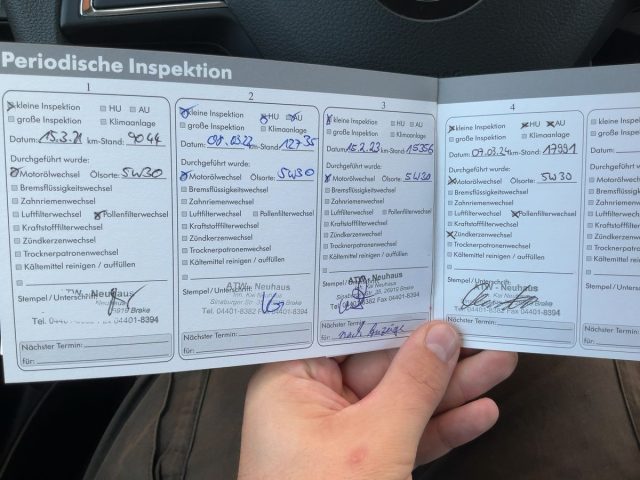 Periodische Inspektion
1
kleine Inspektion HU AU
große Inspektion Klimaanlage
Datum: 15.3.21 km-Stand: 9044
Durchgeführt wurde:
Motorölwechsel Ölsorte: 5W30
Bremsflüssigkeitswechsel
Zahnriemenwechsel
Luftfilterwechsel Pollenfilterwechsel
Kraftstofffilterwechsel
Zündkerzenwechsel
Trocknerpatronenwechsel
Kältemittel reinigen / auffüllen
Neuhaus
Stempel / Unterschrift:
Brake
Nächster Termin:
für:
2
kleine Inspektion HU AU
große Inspektion Klimaanlage
Datum: 09.03.22 km-Stand: 12735
Durchgeführt wurde:
Motorölwechsel Ölsorte: 5W30
Bremsflüssigkeitswechsel
Zahnriemenwechsel
Luftfilterwechsel Pollenfilterwechsel
Kraftstofffilterwechsel
Zündkerzenwechsel
Trocknerpatronenwechsel
Kältemittel reinigen / auffüllen
ATW - Neuhaus
Stempel / Unterschrift:
Brake
Tel. 04401-8382 Fax 04401-8394
Nächster Termin:
für:
3
kleine Inspektion HU AU
große Inspektion Klimaanlage
Datum: 15.2.23 km-Stand: 15356
Durchgeführt wurde:
Motorölwechsel Ölsorte: 5W30
Bremsflüssigkeitswechsel
Zahnriemenwechsel
Luftfilterwechsel Pollenfilterwechsel
Kraftstofffilterwechsel
Zündkerzenwechsel
Trocknerpatronenwechsel
Kältemittel reinigen / auffüllen
ATW - Neuhaus
Stempel / Unterschrift:
Brake
04401-8382 Fax 04401-8394
Nächster Termin: nach Anzeige
für:
4
kleine Inspektion HU AU
große Inspektion Klimaanlage
Datum: 07.03.24 km-Stand: 17991
Durchgeführt wurde:
Motorölwechsel Ölsorte: 5W30
Bremsflüssigkeitswechsel
Zahnriemenwechsel
Luftfilterwechsel Pollenfilterwechsel
Kraftstofffilterwechsel
Zündkerzenwechsel
Trocknerpatronenwechsel
Kältemittel reinigen / auffüllen
ATW - Neuhaus
Stempel / Unterschrift:
Brake
Tel. 04401-8382 Fax 04401-8394
Nächster Termin:
für: